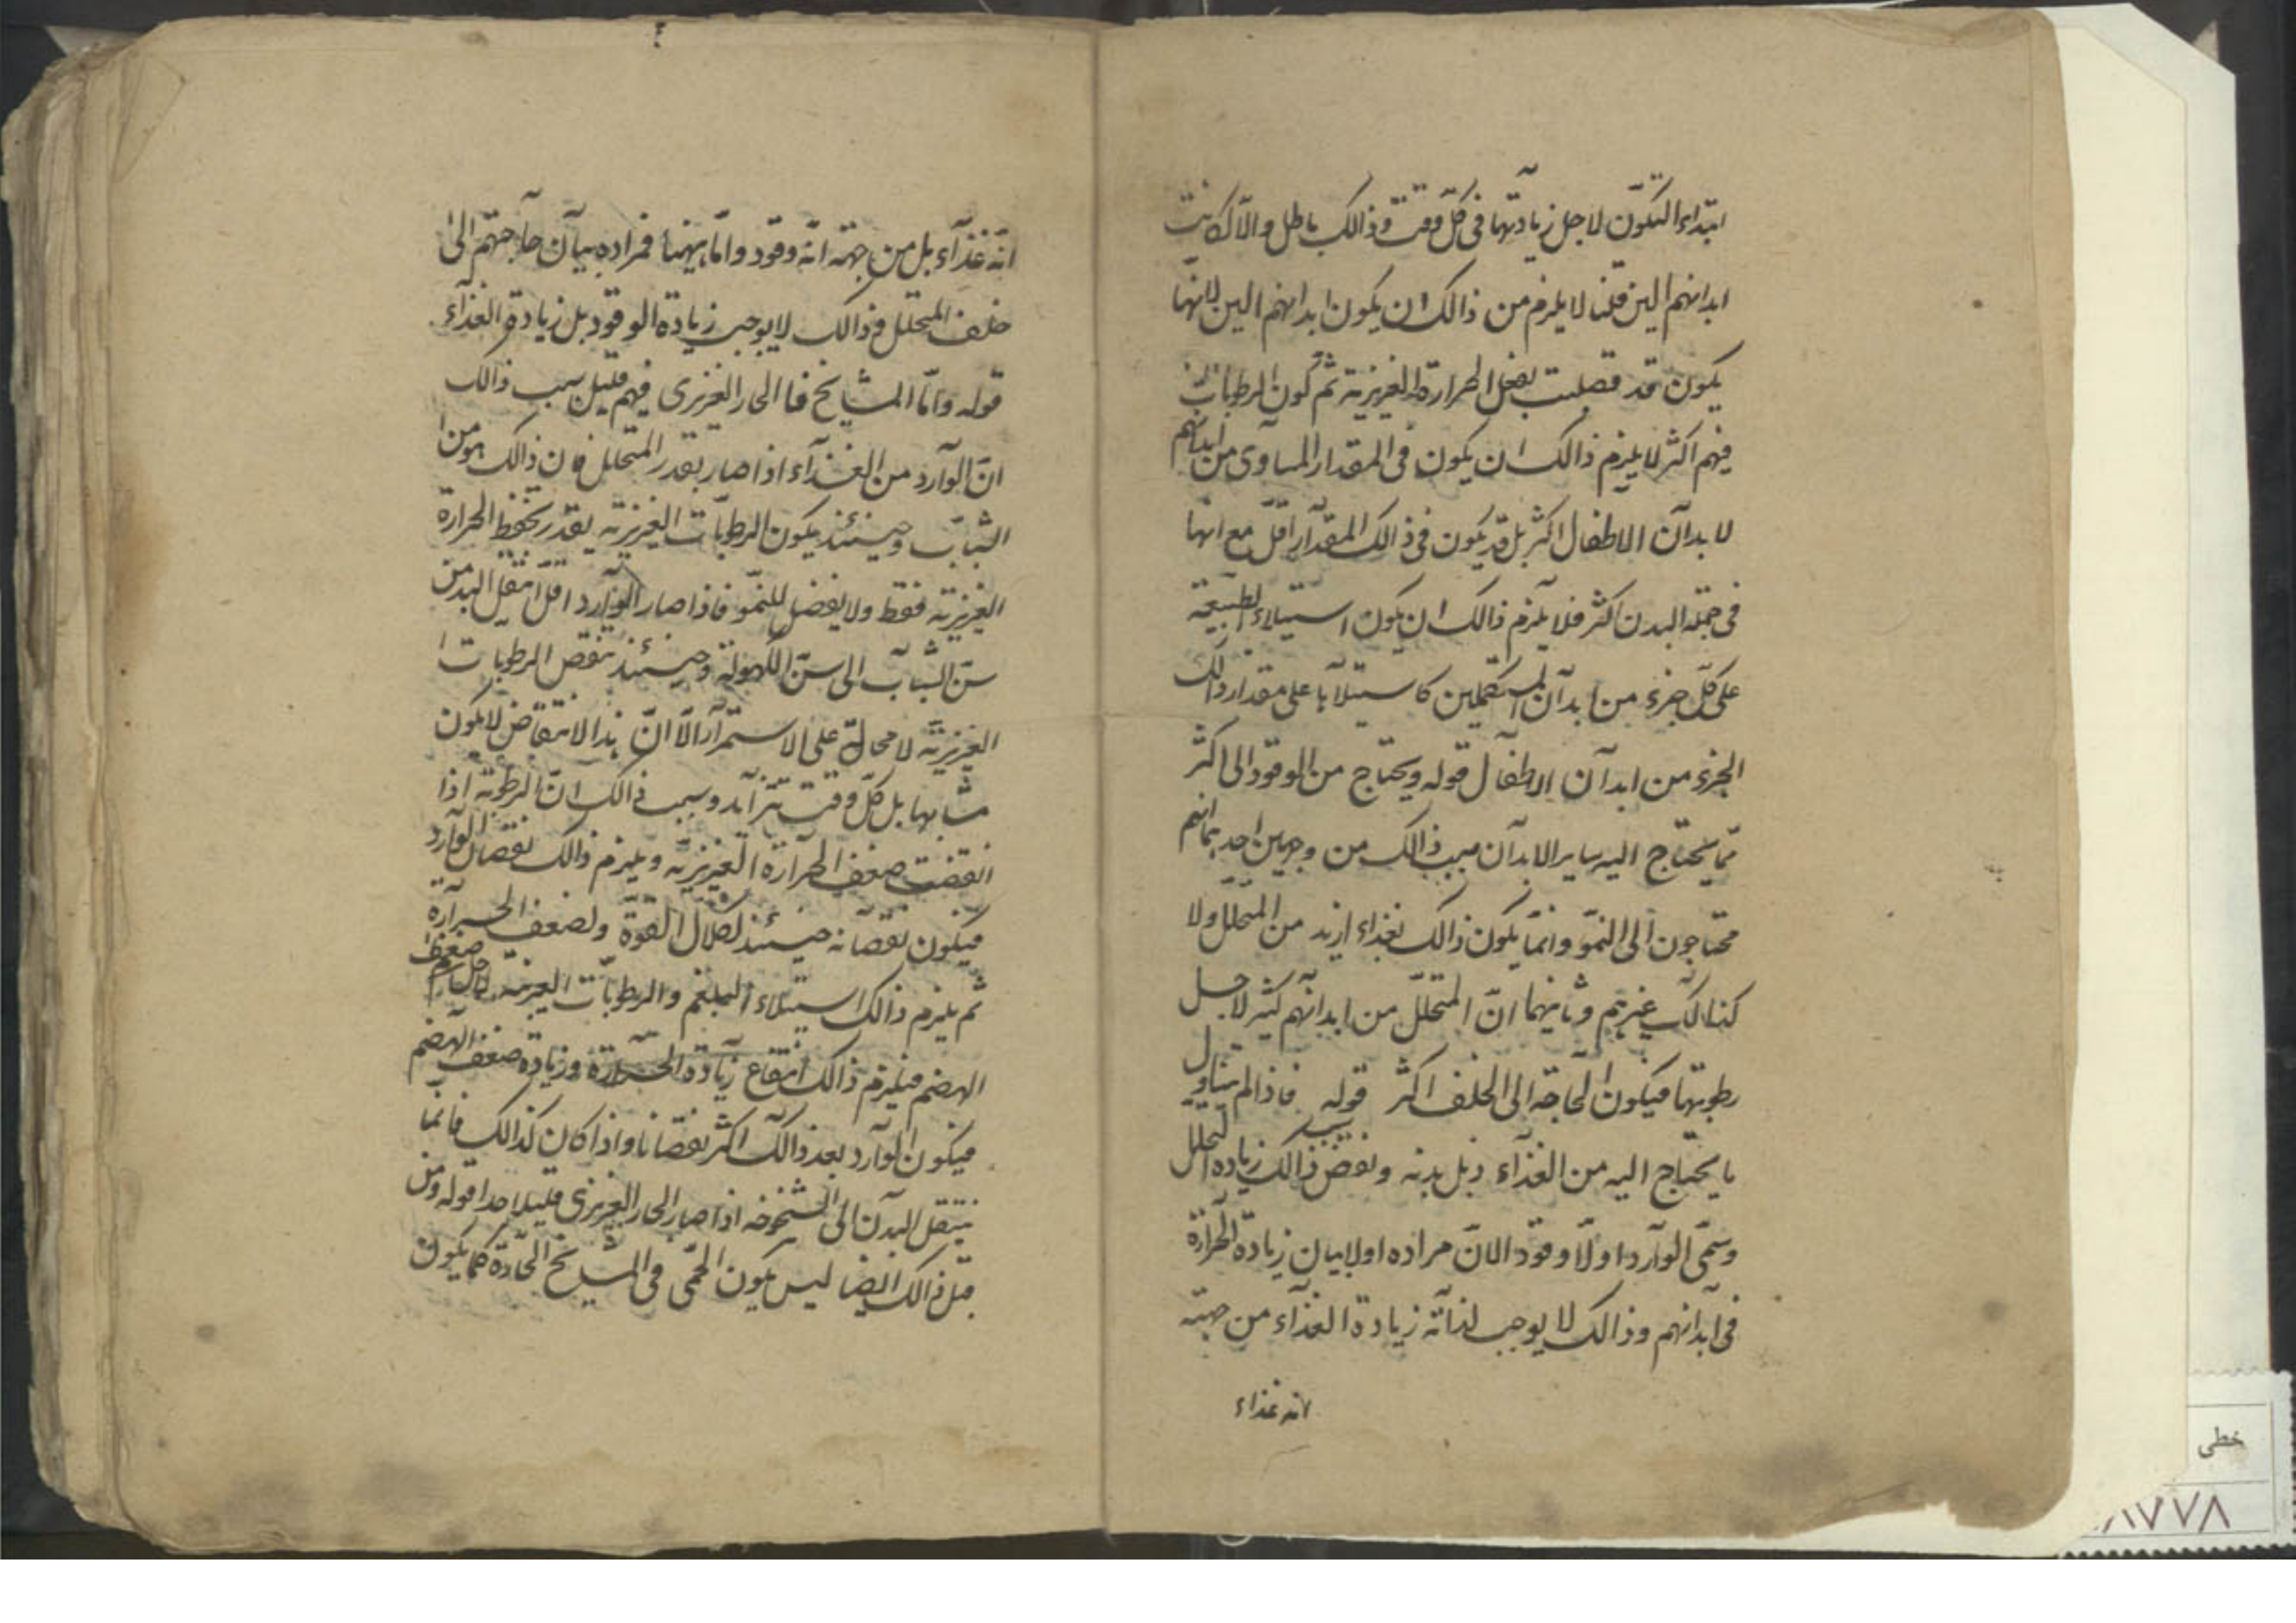 ابتداء التكوّن لاجل زيادتها فى كلّ وقت وذالك باطل والّا لكانت
ابدانهم الين قلنا لا يلزم من ذالك ان يكون ابدانهم الين لانها
يكون قد فصلت بفعل الحرارة الغريزية ثم كون الرطوبات
فيهم اكثر لا يلزم ذالك ان يكون فى المقدار المساوى من ابدانهم
لا بدآن الاطفال اكثر بل قد يكون فى ذالك المقدآر اقلّ مع انها
فى جملة البدن اكثر فلا يلزم ذالك ان يكون استيلاء الطبيعة
على كلّ جزء من ابدآن المستكملين كاستيلآئها على مقدار ذالك
الجزء من ابدآن الاطفآل قوله ويحتاج من الوقود الى اكثر
ممّا يحتاج اليه ساير الابدآن سبب ذالك من وجهين احدهما انهم
محتاجون الى النموّ وانمّا يكون ذالك بغذاء ازيد من المتحلّل ولا
كذالك غيرهم وثانيهما انّ المتحلّل من ابدآنهم كثير لاجل
رطوبتها فيكون الحاجة الى الخلف اكثر قوله فاذا لم يتناول
ما يحتاج اليه من الغذآء ذبل بدنه ونقص ذالك بسبب زيادة التحلل
وسمّى الوآرد اولّا وقودا لانّ مراده اولا بيان زيادة الحرآرة
فى آبدآنهم وذالك لا يوجب لذآته زيادة الغذآء من جهة
انه غذاء
انّه غذآء بل من جهة انّه وقود وامّا هيهنا فمراده بيآن حآجتهم الى
خلف المتحلل وذالك لا يوجب زيادة الوقود بل زيادة الغذآء
قوله وامّا المشايخ فا الحار الغريزى فيهم قليل سبب ذالك
انّ الوآرد من الغذآء اذا صار بقدر المتحلل فان ذالك هو من
الشباب وحينئذ يكون الرطوبآت الغريزية بقدر تحفظ الحرارة
الغريزية فقط ولا يفضل للنموّ فاذا صار الوآرد اقلّ انتقل البدن من
سنّ الشبآب الى سنّ الكهولة وحينئذ تنقص الرطوبات
الغريزيّة لا محالة على الاستمرآر الّا انّ هذا الانتقاض لا يكون
متشابها بل كلّ وقت يتزآيد وسبب ذالك انّ الرطوبة اذا
انتقضت ضعف الحرآرة الغريزيّة ويلزم ذالك نقصان الوآرد
فيكون نقصآنه حينئذ لكلال القوّة ولضعف الحرآرة
ثم يلزم ذالك استيلاء البلغم والرطوبآت الغريبة لاجل ضعف
الهضم فيلزم ذالك انتقاع زيآدة الحرآرة وزيادة ضعف الهضم
فيكون الوآرد بعد ذالك اكثر نقصانا واذا كان كذالك فانما
ينتقل البدآن الى الشيخوخة اذا صار الحار الغريزى قليلا جدا قوله ومن
قبل ذالك ايضا ليس يكون الحمّى فى المشايخ الحآدة كما يكون
خطى